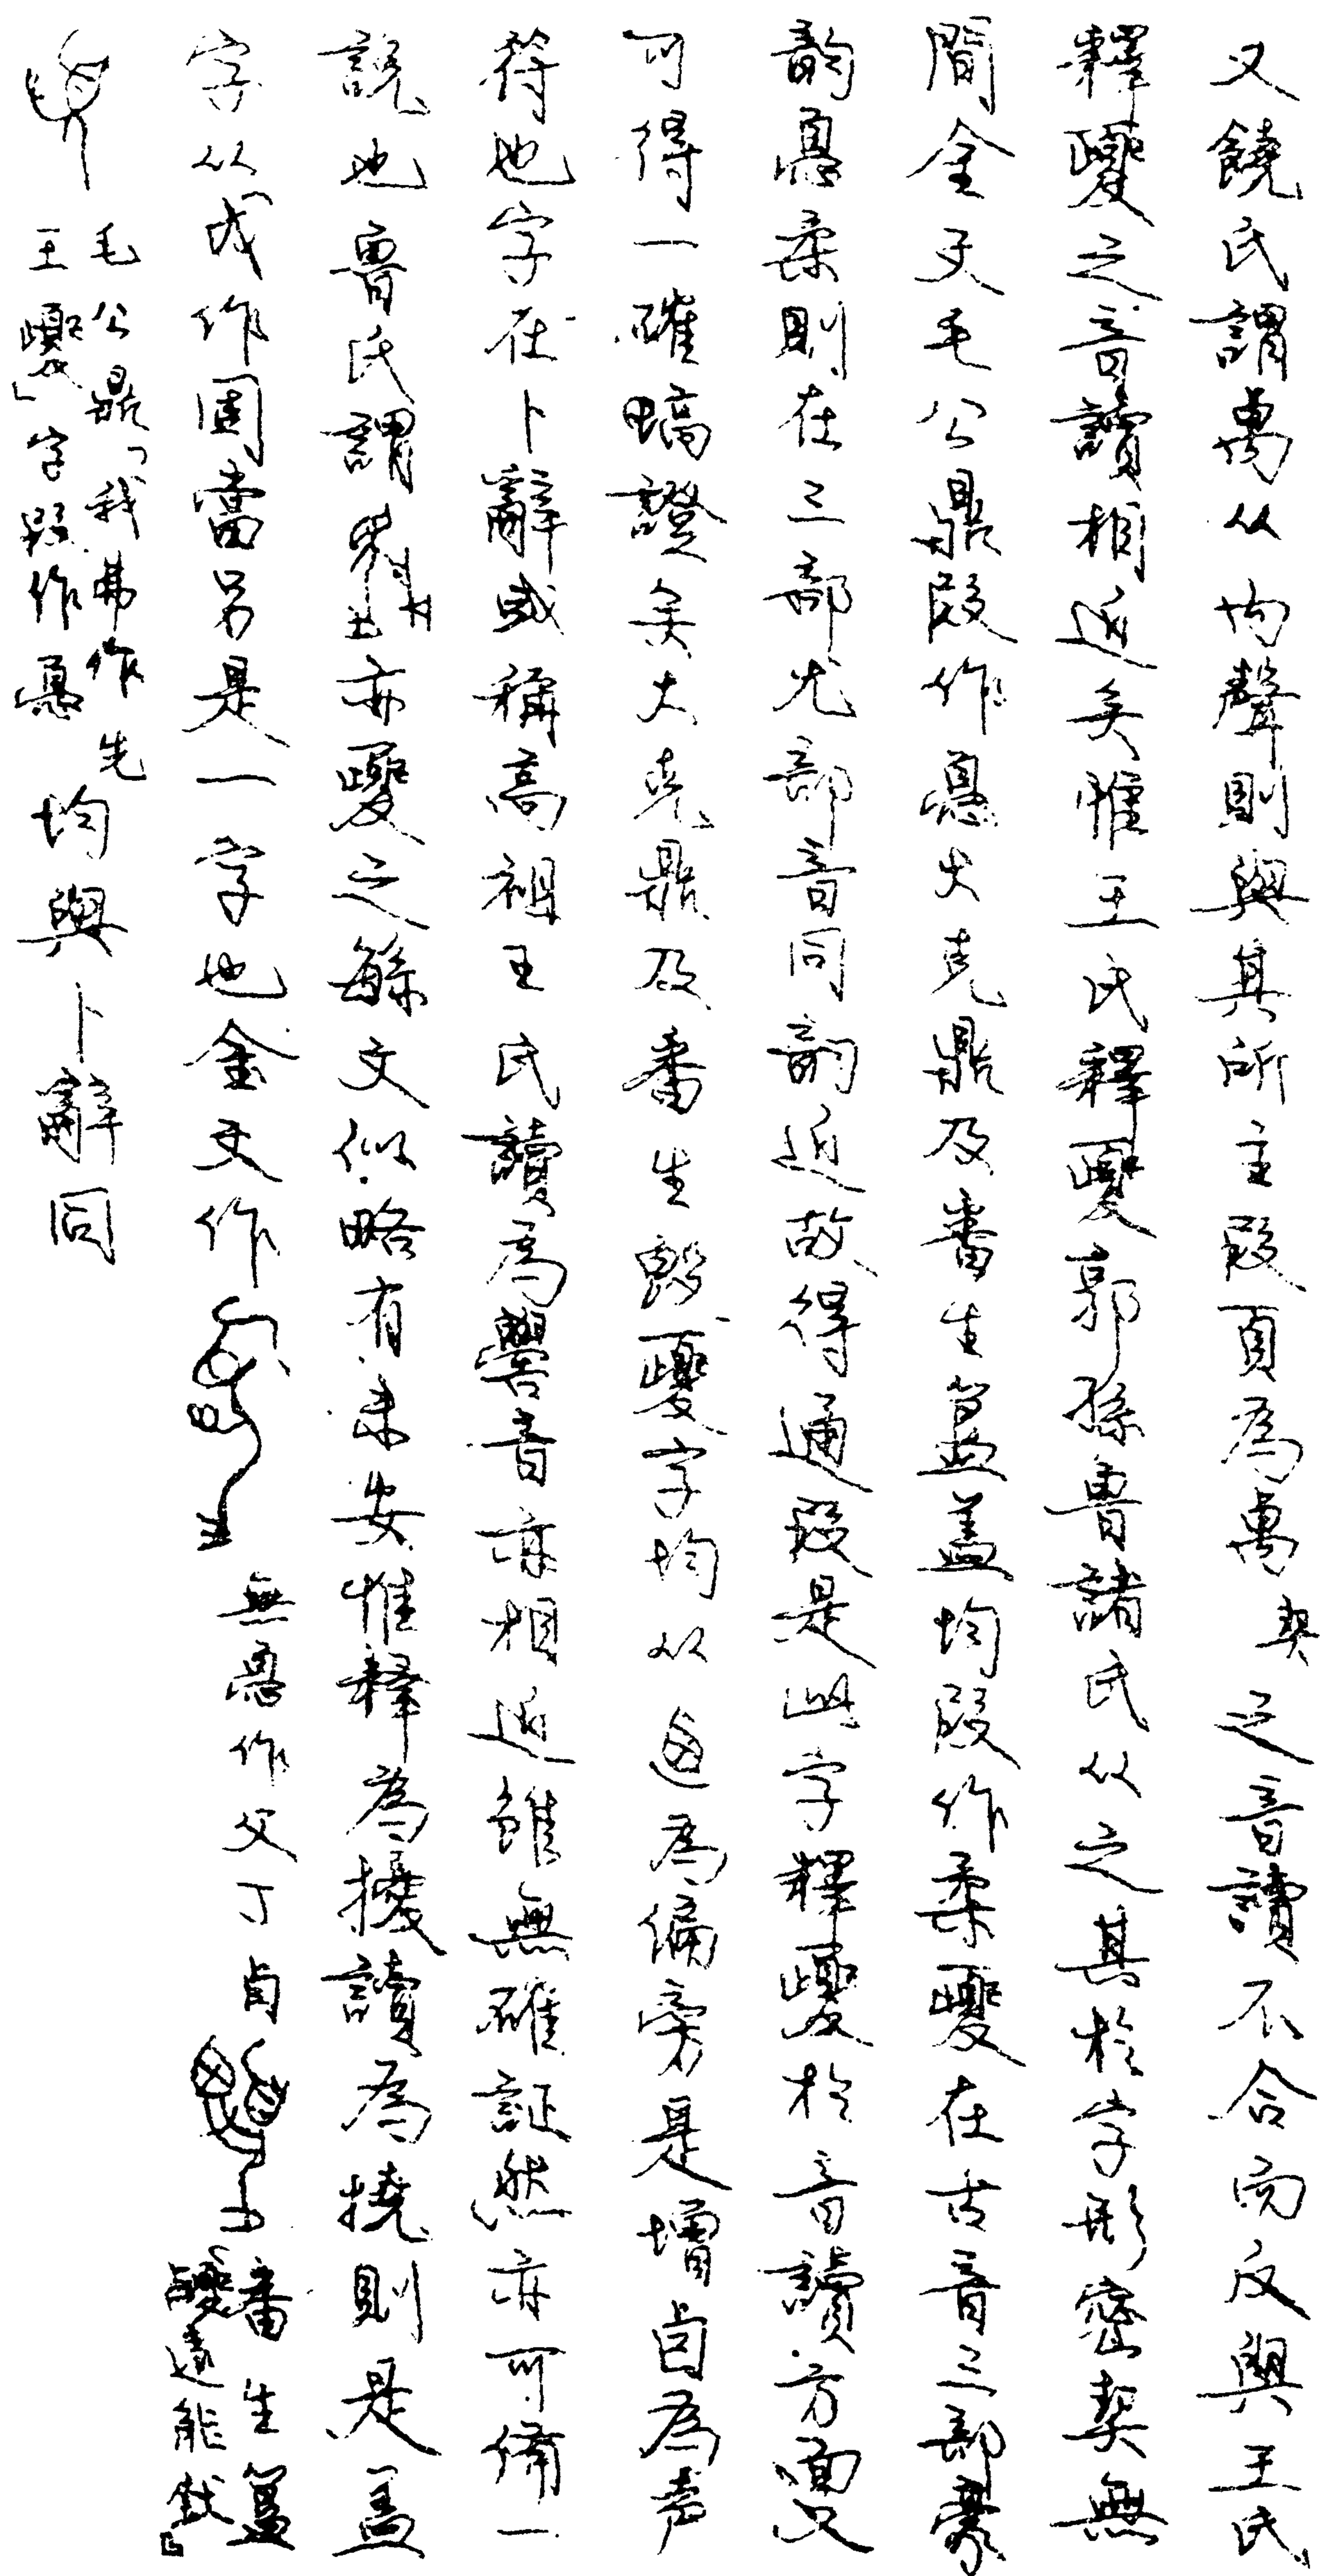 又饒氏謂禼从均聲則與其所主叚頁為禼契之音讀不合而反與王氏
釋夒之音讀相近矣惟王氏釋夒郭孫魯諸氏从之其於字形密契無
間金文毛公鼎叚作憂大克鼎及番生簋蓋均叚作柔夒在古音三部豪
韵憂柔則在三部尤部音同韵近故得通叚是此字釋夒於音讀方面又
可得一確墧證矣大克鼎及番生𣪘夒字均从卣為偏旁是增卣為声
符也字在卜辭或稱高祖王氏讀為嚳音亦相近雖無確証然亦可備一
說也魯氏謂亦夒之繇文似略有未安惟释為擾讀為撓則是蓋
字从戌作固當另是一字也金文作 無憂作父丁卣 番生簋「夒遠能㹜」
毛公鼎「我弗作先王夒」字叚作憂 均與卜辭同